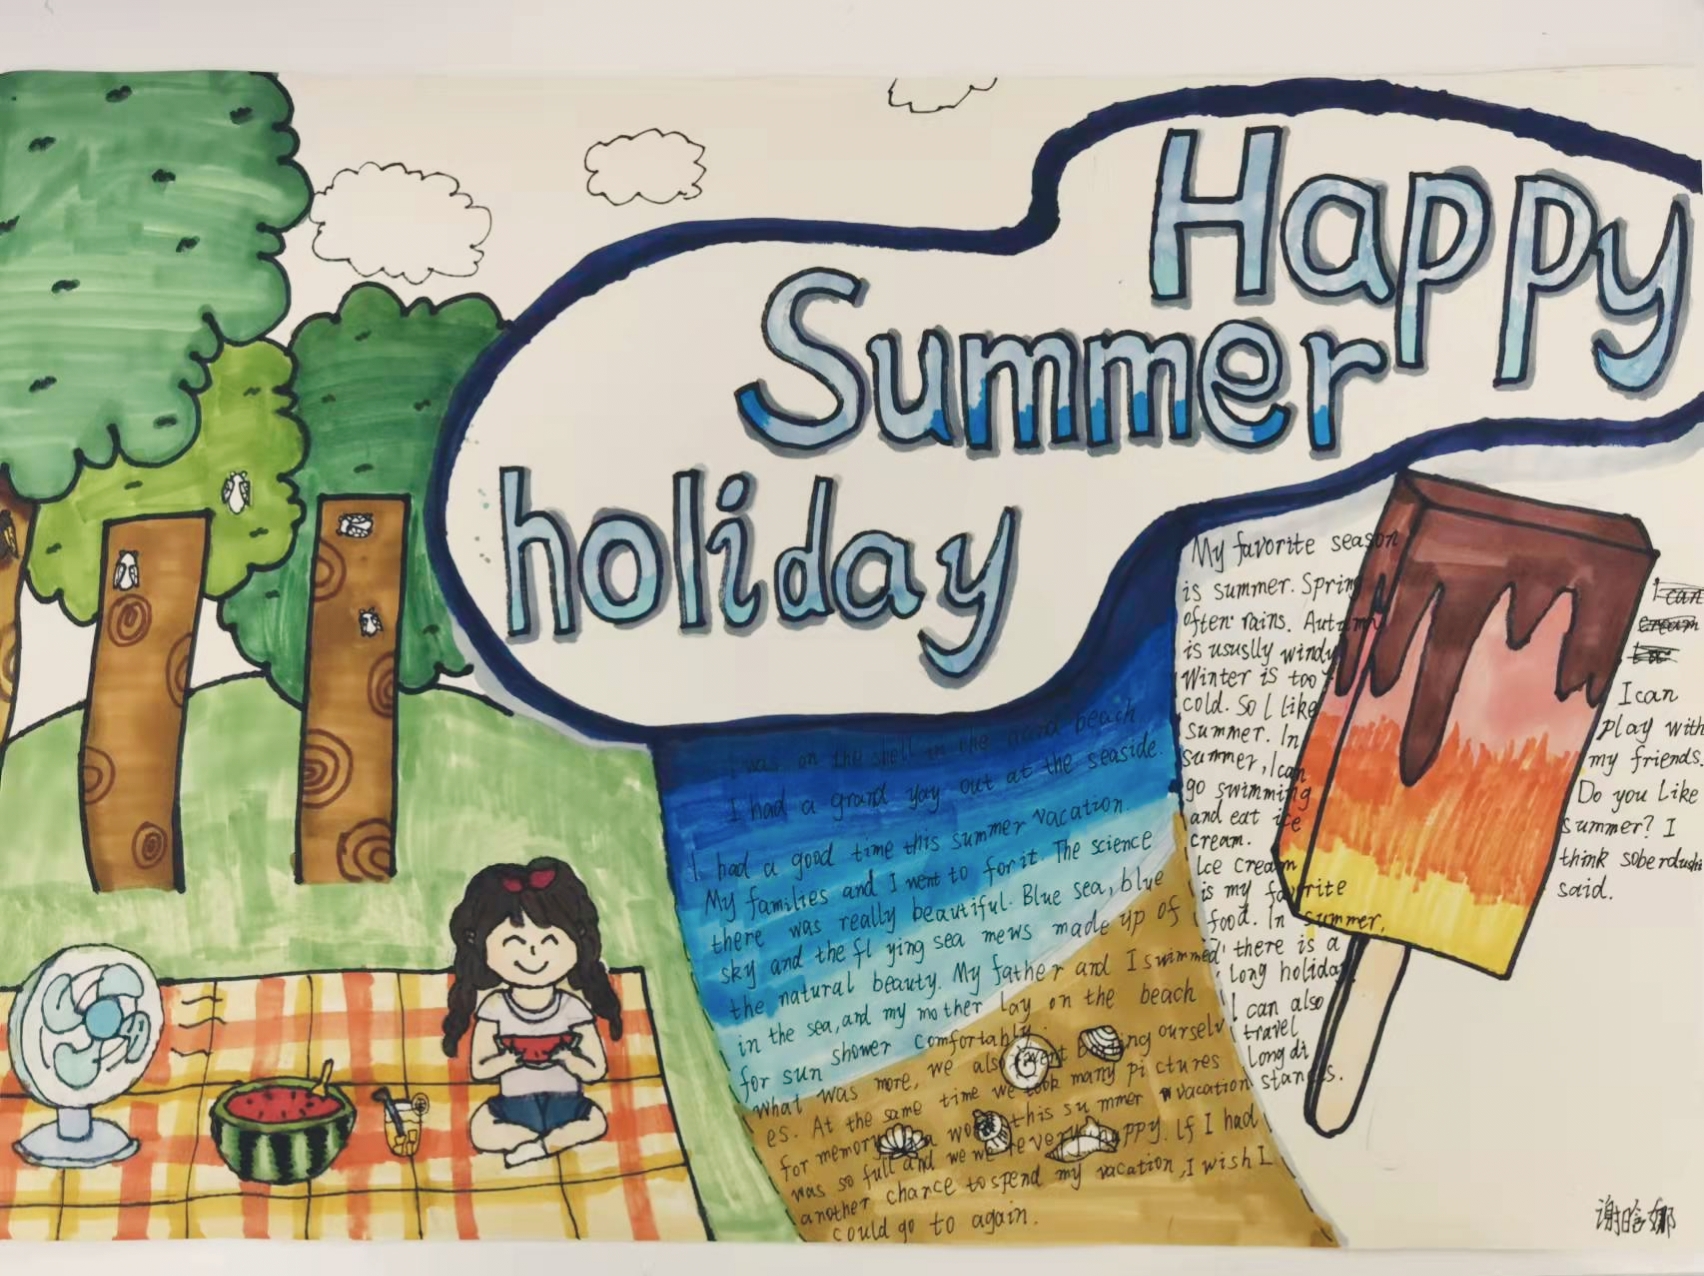 Happy
Summer
holiday
I was on the shell in the beach
I had a grand yay out at the seaside.
I had a good time this summer vacation
My families and I went to for it. The science
there was really beautiful. Blue sea, blue
sky and the fl ying sea mews made up of
the natural beauty. My father and I swimmed
in the sea, and my mother lay on the beach
for sun shower comfortably.
What was more, we also went ourselv
es. At the same time we took many pi ctures
for memory this su mmer vacation
was so full and we we re very happy. If I had
another chance to spend my vacation, I wish I
could go to again.
My favorite season
is summer. Spring
often rains. Autumn
is ususlly windy
Winter is too
cold. So I like
summer. In
summer, I can
go swimming
and eat ice
cream.
Ice cream
is my favrite
food. In summer,
there is a
long holiday.
I can also
travel
long di
stances.
I can
play with
my friends.
Do you like
summer? I
think
said.
谢晗娜